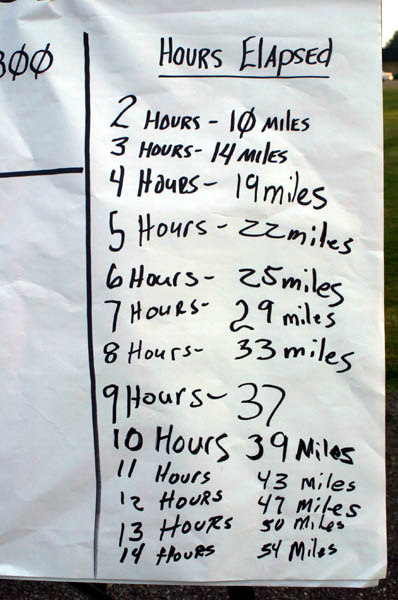 300
HOURS ELAPSED
2 HOURS - 10 MILES
3 HOURS - 14 MILES
4 HOURS - 19 miles
5 HOURS - 22 miles
6 HOURS - 25 miles
7 HOURS - 29 miles
8 HOURS - 33 miles
9 HOURS - 37
10 HOURS 39 MILES
11 HOURS 43 MILES
12 HOURS 47 MILES
13 HOURS 50 MILES
14 HOURS 54 MILES